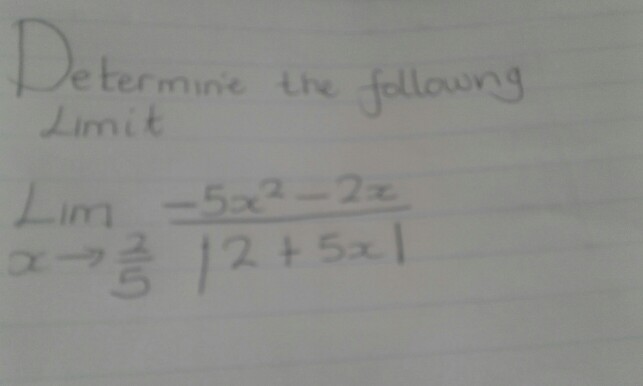 Determine the followng
Limit
Lim -5x² - 2x
x → 2/5 |2 + 5x|